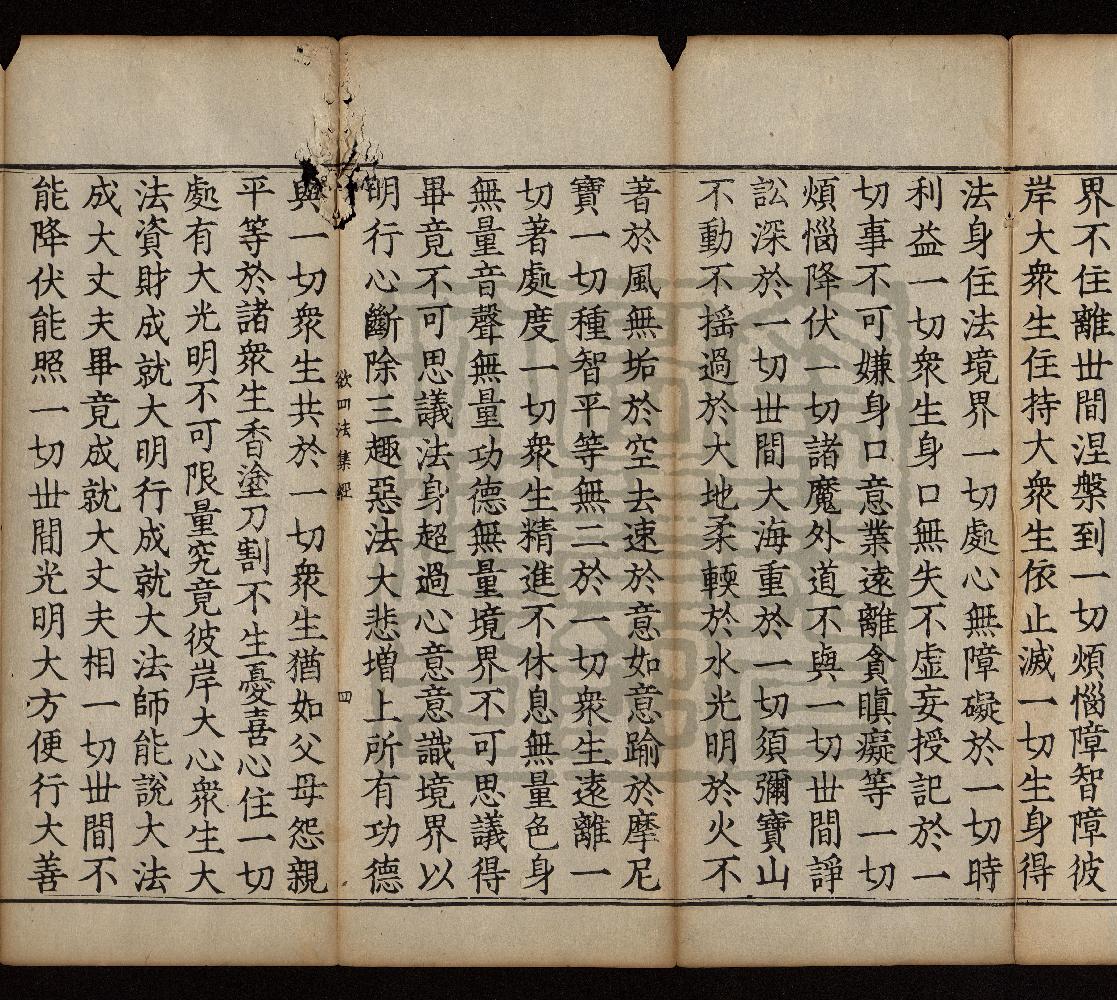 界不住離世間涅槃到一切煩惱障智障彼
岸大衆生住持大衆生依止滅一切生身得
法身住法境界一切處心無障礙於一切時
利益一切衆生身口無失不虛妄授記於一
切事不可嫌身口意業遠離貪瞋癡等一切
煩惱降伏一切諸魔外道不與一切世間諍
訟深於一切世間大海重於一切須彌寶山
不動不摇過於大地柔輭於水光明於火不
著於風無垢於空去速於意如意踰於摩尼
寶一切種智平等無二於一切衆生遠離一
切著處度一切衆生精進不休息無量色身
無量音聲無量功德無量境界不可思議得
畢竟不可思議法身超過心意意識境界以
明行心斷除三趣惡法大悲增上所有功德
欲四 法集經 四
與一切衆生共於一切衆生猶如父母怨親
平等於諸衆生香塗刀割不生憂喜心住一切
處有大光明不可限量究竟彼岸大心衆生大
法資財成就大明行成就大法師能說大法
成大丈夫畢竟成就大丈夫相一切世間不
能降伏能照一切世間光明大方便行大善